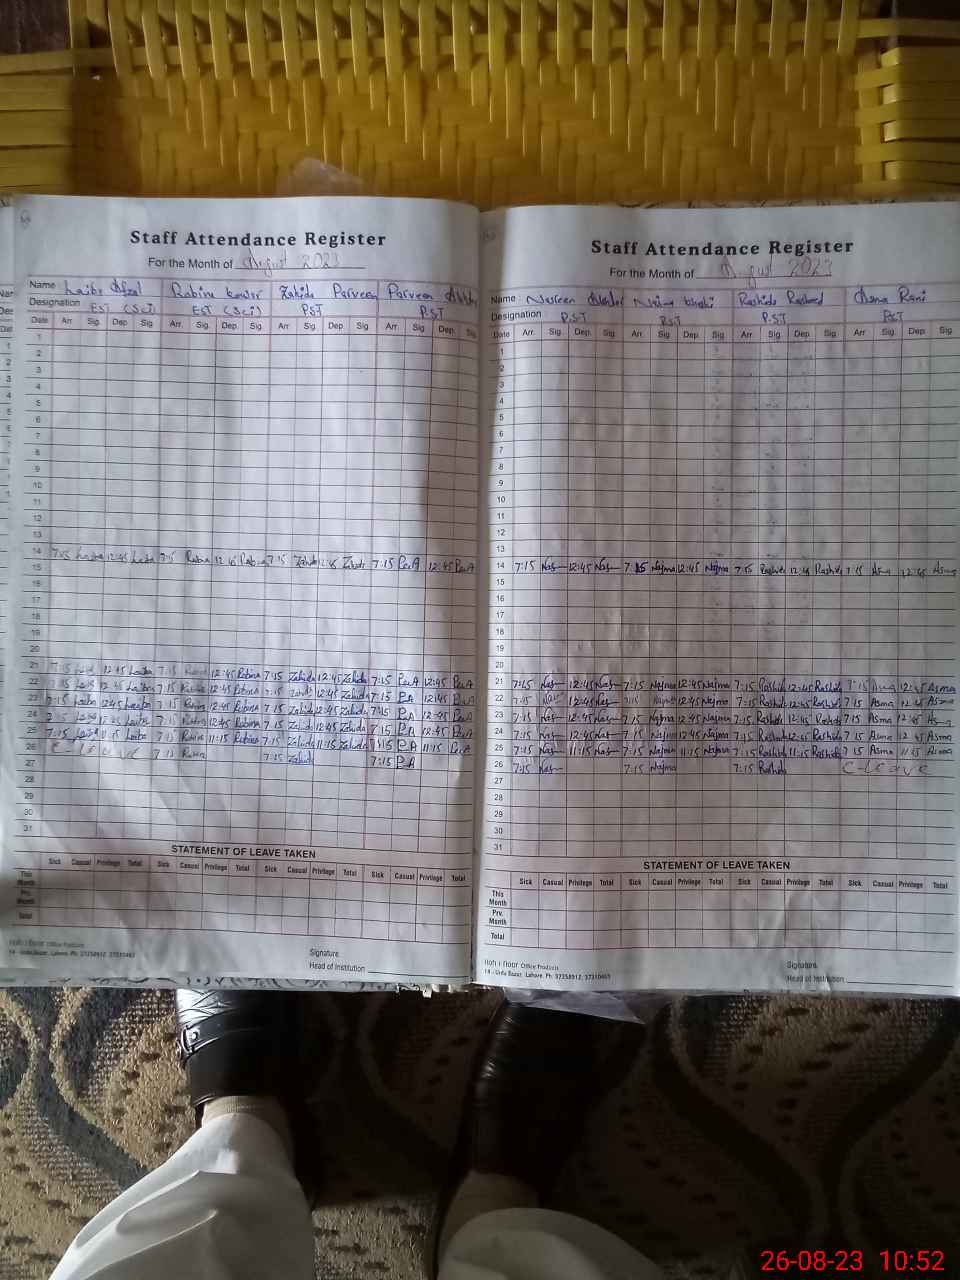 Staff Attendance Register
For the Month of August 2023
Name Laiba Afzal Rabina Kowsr Zahida Parveen Parveen Akhtar
Designation EST (Sci) EST (Sci) PST PST
Date Arr. Sig. Dep. Sig. Arr. Sig. Dep. Sig. Arr. Sig. Dep. Sig. Arr. Sig. Dep. Sig.
1
2
3
4
5
6
7
8
9
10
11
12
13
14 7:15 Laiba 12:45 Laiba 7:15 Rabina 12:45 Rabina 7:15 Zahida 12:45 Zahida 7:15 PerA 12:45 PerA
15
16
17
18
19
20
21 7:15 12:45 Laiba 7:15 12:45 Rabina 7:15 Zahida 12:45 Zahida 7:15 PerA 12:45
22 7:15 Laiba 12:45 Laiba 7:15 Rabina 12:45 Rabina 7:15 Zahida 12:45 Zahida 7:15 P.A 12:45 P.A
23 7:15 Laiba 12:45 Laiba 7:15 Rabina 12:45 Rabina 7:15 Zahida 12:45 Zahida 7:15 P.A 12:45 P.A
24 7:15 Laiba 12:45 Laiba 7:15 Rabina 12:45 Rabina 7:15 Zahida 12:45 Zahida 7:15 P.A 12:45 P.A
25 7:15 Laiba 11:15 Laiba 7:15 Rabina 11:15 Rabina 7:15 Zahida 11:15 Zahida 7:15 P.A 11:15 PerA
26 C-Leave 7:15 Rabina 7:15 Zahida 7:15 P.A
27
28
29
30
31
STATEMENT OF LEAVE TAKEN
Sick Casual Privilege Total Sick Casual Privilege Total Sick Casual Privilege Total Sick Casual Privilege Total
This Month
Prv. Month
Total
Office Products
14 - Urdu Bazar, Lahore. Ph: 37358912, 37310463
Signature
Head of Institution
Staff Attendance Register
For the Month of August 2023
Name Nasreen Akhtar Najma Rashida Rasheed Asma Rani
Designation PST PST PST PST
Date Arr. Sig. Dep. Sig. Arr. Sig. Dep. Sig. Arr. Sig. Dep. Sig. Arr. Sig. Dep. Sig.
1
2
3
4
5
6
7
8
9
10
11
12
13
14 7:15 Nas 12:45 Nas 7:15 Najma 12:45 Najma 7:15 Rashida 12:45 Rashida 7:15 Asma 12:45 Asma
15
16
17
18
19
20
21 7:15 Nas 12:45 Nas 7:15 Najma 12:45 Najma 7:15 Rashida 12:45 Rashida 7:15 Asma 12:45 Asma
22 7:15 Nas 12:45 Nas 7:15 Najma 12:45 Najma 7:15 Rashida 12:45 Rashida 7:15 Asma 12:45 Asma
23 7:15 Nas 12:45 Nas 7:15 Najma 12:45 Najma 7:15 Rashida 12:45 Rashida 7:15 Asma 12:45 Asma
24 7:15 Nas 12:45 Nas 7:15 Najma 12:45 Najma 7:15 Rashida 12:45 Rashida 7:15 Asma 12:45 Asma
25 7:15 Nas 11:15 Nas 7:15 Najma 11:15 Najma 7:15 Rashida 11:15 Rashida 7:15 Asma 11:15 Asma
26 7:15 Nas 7:15 Najma 7:15 Rashida C-Leave
27
28
29
30
31
STATEMENT OF LEAVE TAKEN
Sick Casual Privilege Total Sick Casual Privilege Total Sick Casual Privilege Total Sick Casual Privilege Total
This Month
Prv. Month
Total
Office Products
14 - Urdu Bazar, Lahore. Ph: 37358912, 37310463
Signature
Head of Institution
26-08-23 10:52